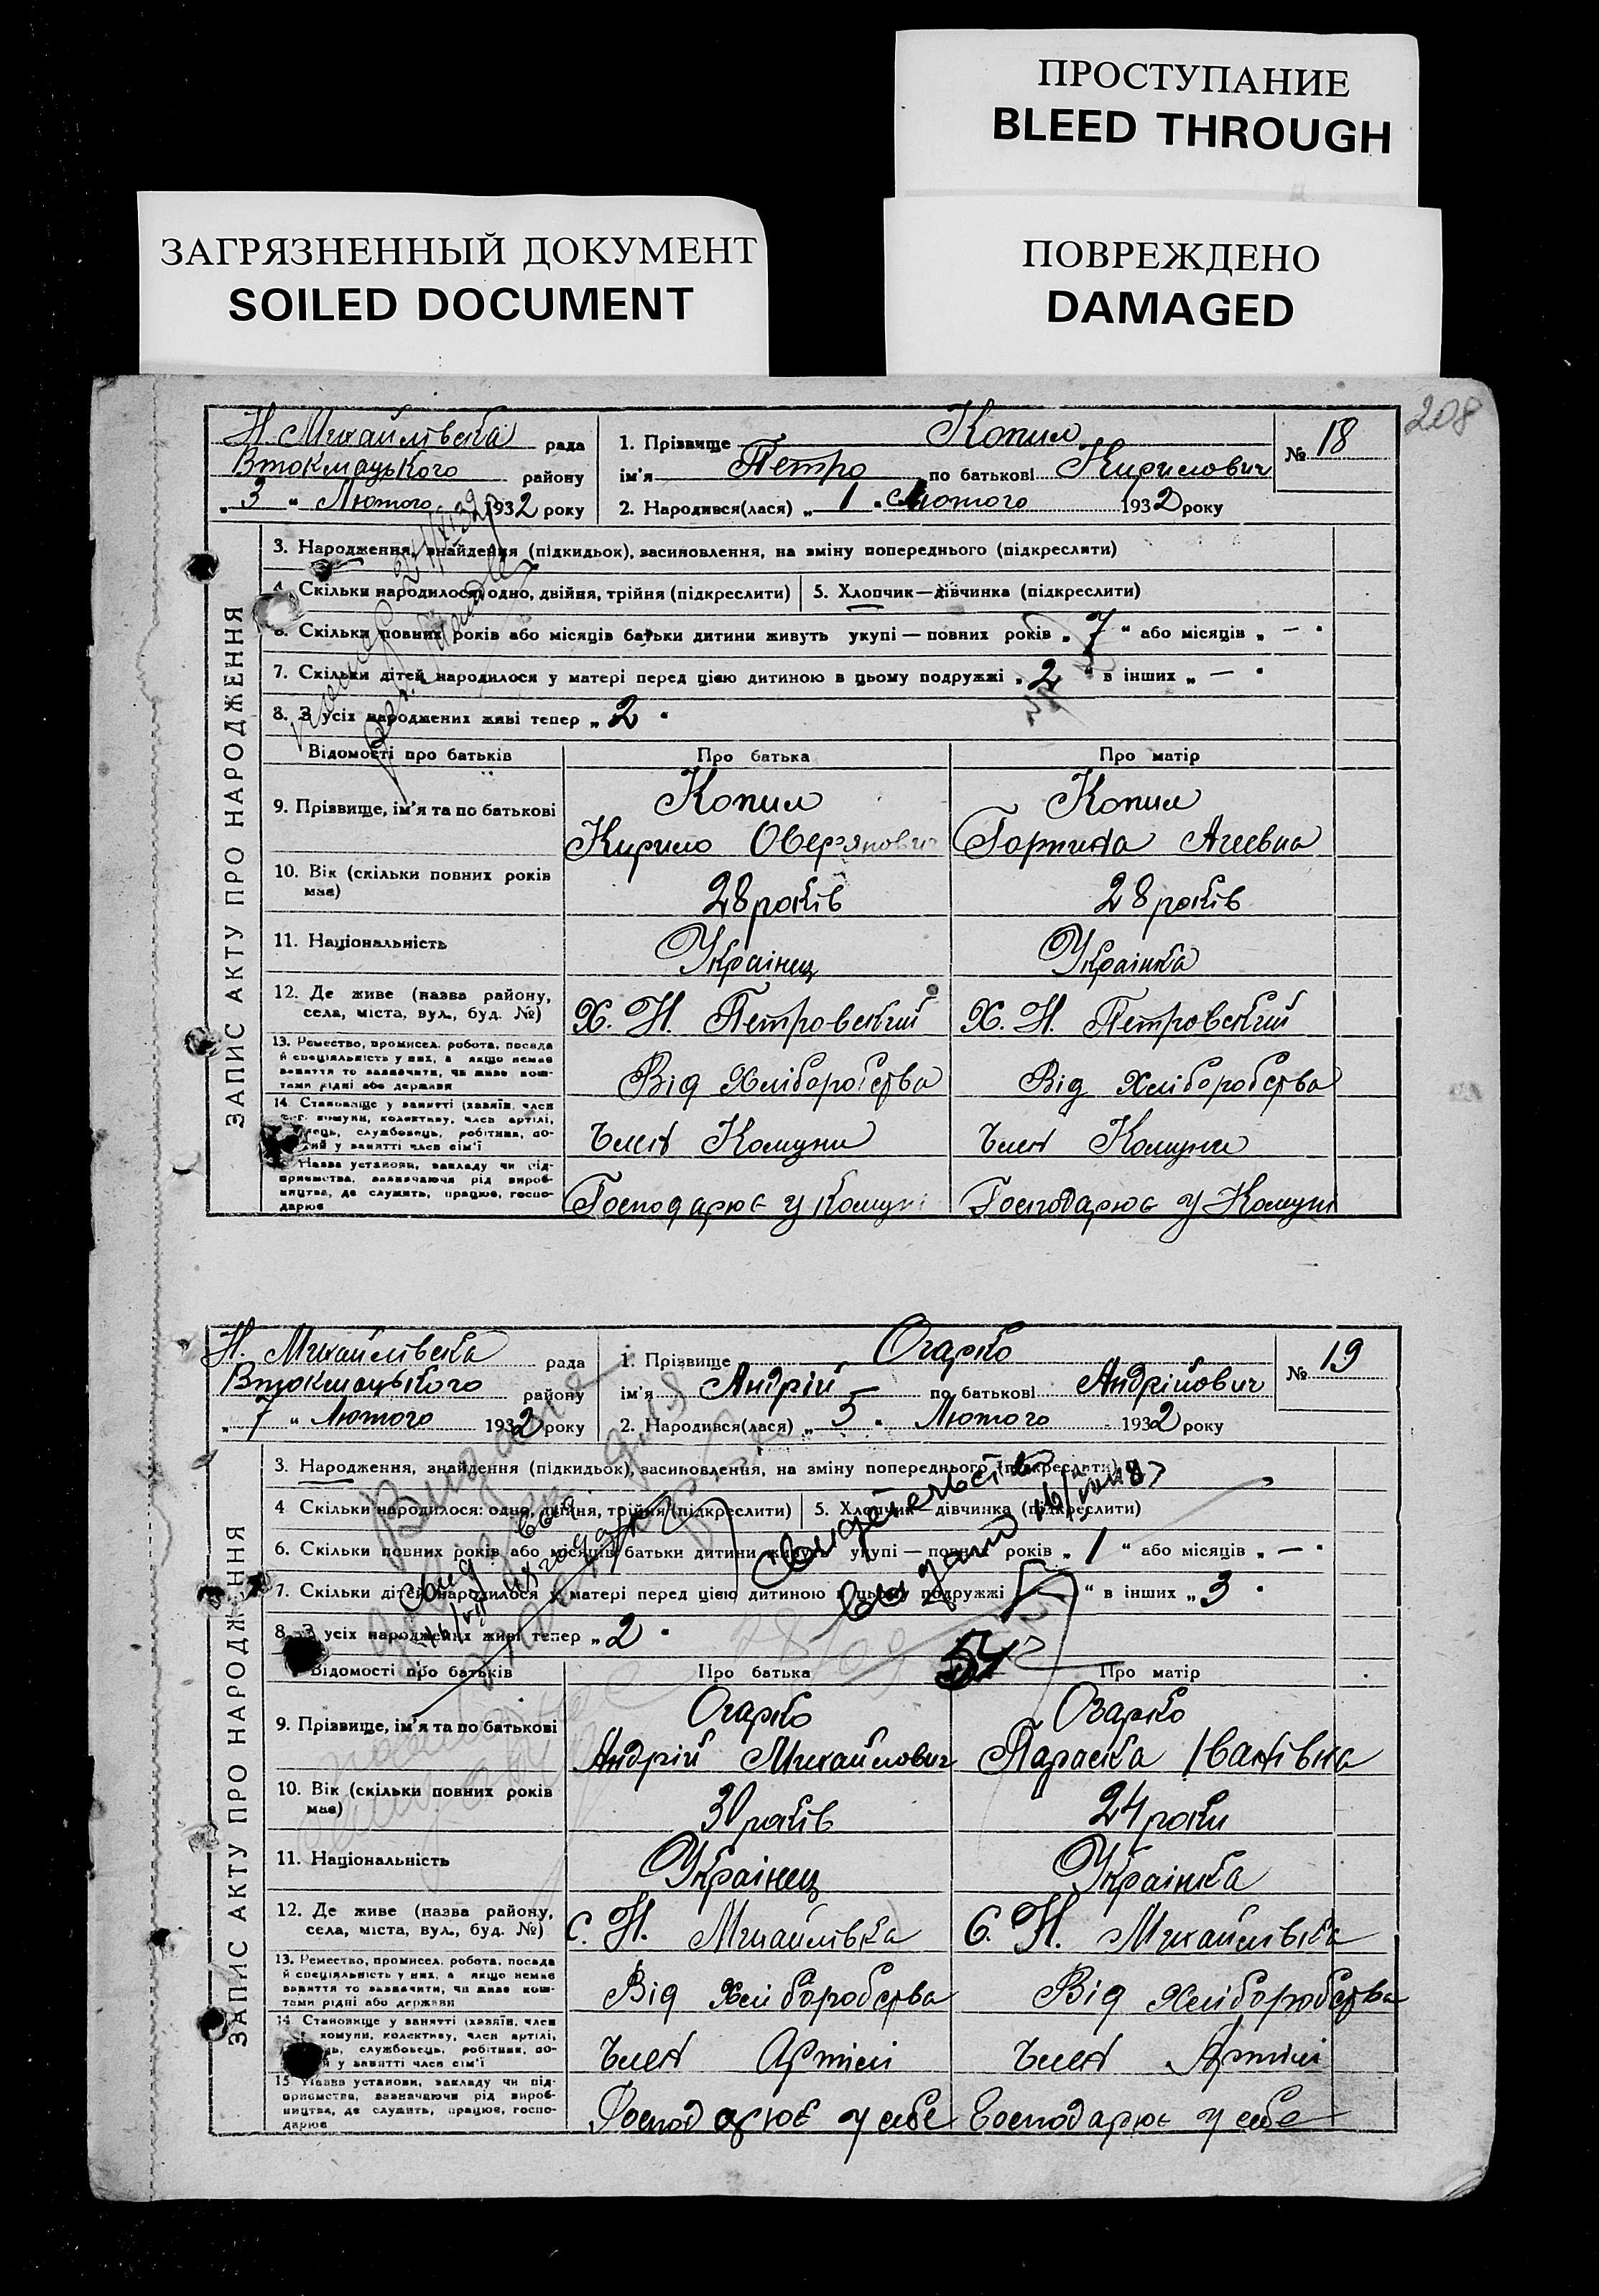 ПРОСТУПАНИЕ
BLEED THROUGH
ЗАГРЯЗНЕННЫЙ ДОКУМЕНТ
SOILED DOCUMENT
ПОВРЕЖДЕНО
DAMAGED
208
ЗАПИС АКТУ ПРО НАРОДЖЕННЯ
Н. Михайлівська рада
Втокмацького району
„ 3 “ Лютого 1932 року
1. Прізвище Копил
ім'я Петро по батькові Кирилович
№ 18
2. Народився(лася) „ 1 “ Лютого 1932 року
3. Народження, знайдення (підкидьок), засиновлення, на зміну попереднього (підкреслити)
4. Скільки народилося: одно, двійня, трійня (підкреслити) 5. Хлопчик—дівчинка (підкреслити)
6. Скільки повних років або місяців батьки дитини живуть укупі — повних років „ 7 “ або місяців „ — “
7. Скільки дітей народилося у матері перед цією дитиною в цьому подружжі „ 2 “ в інших „ — “
8. З усіх народжених живі тепер „ 2 “
Відомості про батьків Про батька Про матір
9. Прізвище, ім'я та по батькові
Копил Копил
Кирило Овер'янович Горпина Агеевна
10. Вік (скільки повних років має)
28 років 28 років
11. Національність Українец Українка
12. Де живе (назва району, села, міста, вул., буд. №)
Х. Н. Петровский Х. Н. Петровский
13. Ремество, промисел, робота, посада й спеціяльність у них, а якщо немає заняття то зазначити, чи живе коштами рідні або держави
Від Хліборобства Від Хліборобства
14. Становище у занятті (хазяїн, член комуни, колективу, член артілі, службовець, робітник, у занятті член сім'ї
Член Комуни Член Комуни
Назва установи, закладу чи підприємства, зазначаючи рід виробництва, де служить, працює, господарює
Господарює у комуні Господарює у Комуні
ЗАПИС АКТУ ПРО НАРОДЖЕННЯ
Н. Михайлівська рада
Втокмацького району
„ 7 “ Лютого 1932 року
1. Прізвище Огарко
ім'я Андрій по батькові Андрійович
№ 19
2. Народився(лася) „ 5 “ Лютого 1932 року
3. Народження, знайдення (підкидьок), засиновлення, на зміну попереднього (підкреслити)
4 Скільки народилося: одно, двійня, трійня (підкреслити) 5. Хлопчик—дівчинка (підкреслити)
6. Скільки повних років або місяців батьки дитини живуть укупі — повних років „ 1 “ або місяців „ — “
7. Скільки дітей народилося у матері перед цією дитиною в цьому подружжі „ — “ в інших „ 3 “
8. З усіх народжених живі тепер „ 2 “
Відомості про батьків Про батька Про матір
9. Прізвище, ім'я та по батькові
Огарко Огарко
Андрій Михайлович Параска Іванівна
10. Вік (скільки повних років має)
30 років 24 роки
11. Національність Українец Українка
12. Де живе (назва району, села, міста, вул., буд. №)
С. Н. Михайлівка С. Н. Михайлівка
13. Ремество, промисел, робота, посада й спеціяльність у них, а якщо немає заняття то зазначити, чи живе коштами рідні або держави
Від Хліборобства Від Хліборобства
14 Становище у занятті (хазяїн, член комуни, колективу, член артілі, службовець, робітник, у занятті член сім'ї
Член Артілі Член Артілі
15 Назва установи, закладу чи підприємства, зазначаючи рід виробництва, де служить, працює, господарює
Господарює у себе Господарює у себе